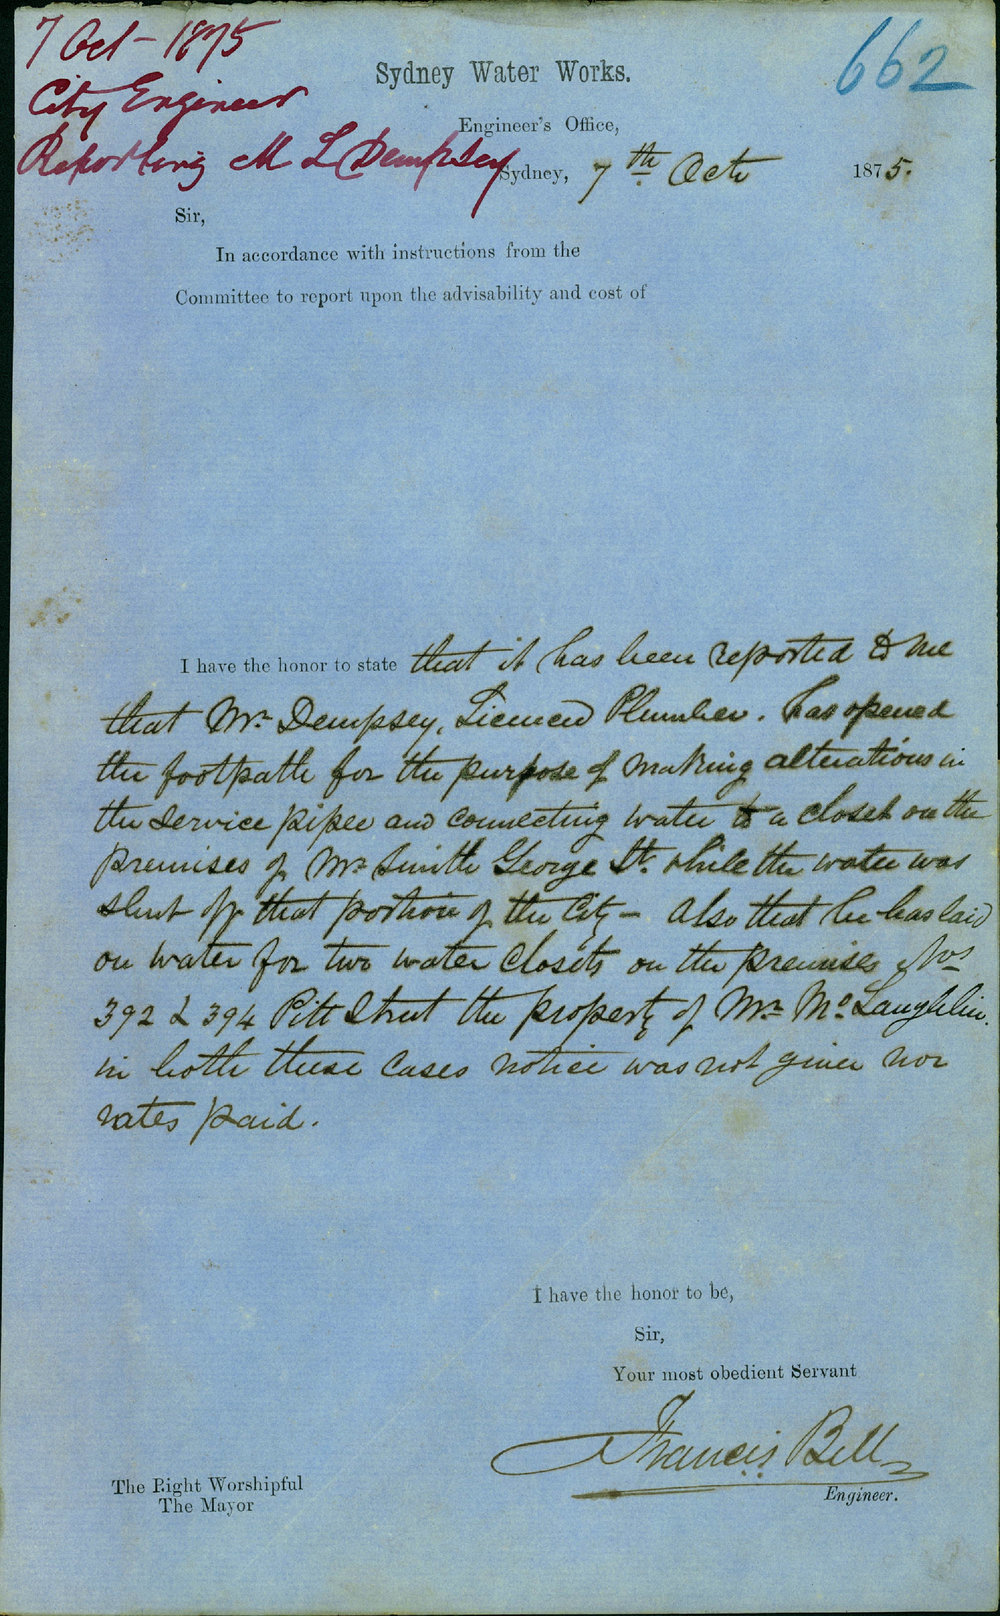 7 Oct - 1875
City Engineer
Reporting M L Dempsey
662
Sydney Water Works.
Engineer's Office,
Sydney, 7th Octr 1875.
Sir,
In accordance with instructions from the
Committee to report upon the advisability and cost of
I have the honor to state that it has been reported to me
that Mr. Dempsey, Licenced Plumber. has opened
the footpath for the purpose of making alterations in
the service pipes and connecting water to a closet on the
premises of Mr. Smith George St. while the water was
shut off that portion of the City - also that he has laid
on water for two water closets on the premises Nos
392 & 394 Pitt Street the property of Mr. McLaughlin.
in both these cases notice was not given nor
rates paid.
I have the honor to be,
Sir,
Your most obedient Servant
Francis Bell
Engineer.
The Right Worshipful
The Mayor